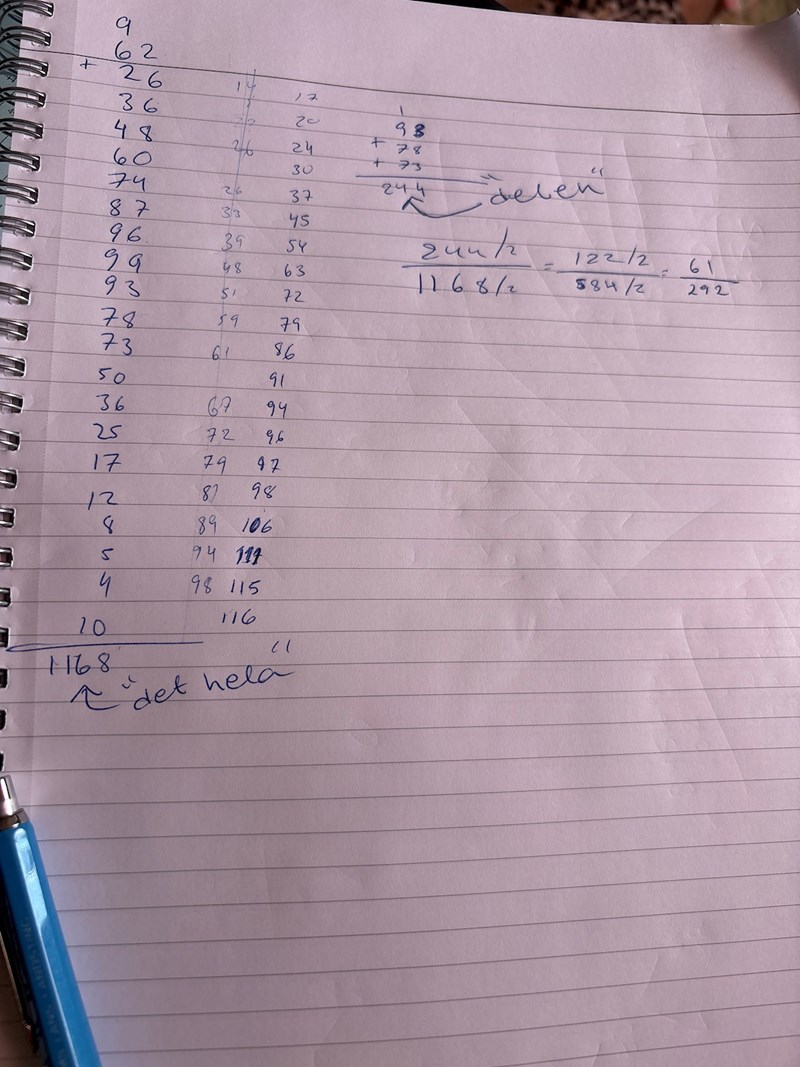 9
62
+ 26
36
48
60
74
87
96
99
93
78
73
50
36
25
17
12
8
5
4
10
1168
"det hela"
14
26
26
33
39
48
51
59
61
67
72
79
81
89
94
98
17
20
24
30
37
45
54
63
72
79
86
91
94
96
97
98
106
111
115
116
1
93
+ 78
+ 73
244 "delen"
244/2 / 1168/2 = 122/2 / 584/2 = 61 / 292